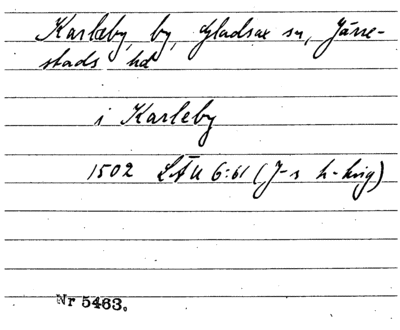 Karleby, by, Gladsax sn, Järre-
stads hd
i Karleby
1502 LÄU 6:61 (J-s h-hvig)
Nr 5463.